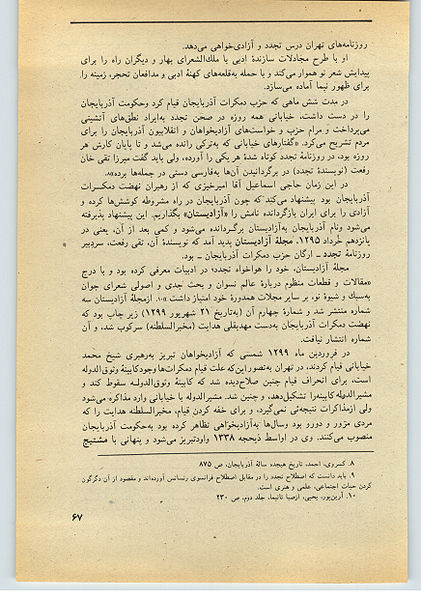 روزنامه‌های تهران درس تجدد و آزادی‌خواهی می‌دهد.
او با طرح مجادلات سازندهٔ ادبی با ملك‌الشعرای بهار و دیگران راه را برای
پیدایش شعر نو هموار می‌کند و با حمله به‌قلعه‌های کهنهٔ ادبی و مدافعان تحجر، زمینه را
برای ظهور نیما آماده می‌سازد.
در مدت شش ماهی که حزب دمکرات آذربایجان قیام کرد وحکومت آذربایجان
را در دست داشت، خیابانی همه روزه در صحن تجدد به‌ایراد نطق‌های آتشینی
می‌پرداخت و مرام حزب و خواست‌های آزادیخواهان و انقلابیون آذربایجان را برای
مردم تشریح می‌کرد. «گفتارهای خیابانی که به‌ترکی رانده می‌شد و تا پایان کارش هر
روزه بود، در روزنامهٔ تجدد کوتاه شدهٔ هر یکی را آورده، ولی باید گفت میرزا تقی خان
رفعت (نویسندهٔ تجدد) در برگردانیدن آن‌ها به‌فارسی دستی در جمله‌ها برده».
در این زمان حاجی اسماعیل آقا امیرخیزی که از رهبران نهضت دمکرات
آذربایجان بود پیشنهاد می‌کند که چون آذربایجان در راه مشروطه کوشش‌ها کرده و
آزادی را برای ایران بازگردانده نامش را «آزادیستان» بگذاریم. این پیشنهاد پذیرفته
می‌شود ونام آذربایجان به‌آزادیستان برگردانده می‌شود و کمی بعد از آن، یعنی در
پانزدهم خرداد ۱۲۹۵، مجلهٔ آزادیستان پدید آمد که نویسندهٔ آن، تقی رفعت، سردبیر
روزنامهٔ تجدد ـ ارگان حزب دمکرات آذربایجان ـ بود.
مجلهٔ آزادیستان، خود را هواخواه تجدد در ادبیات معرفی کرده بود و با درج
«مقالات و قطعات منظوم دربارهٔ عالم نسوان و بحث جدی و اصولی شعرای جوان
به‌سبك و شیوهٔ نو، بر سایر مجلات همدورهٔ خود امتیاز داشت». ازمجلهٔ آزادیستان سه
شماره منتشر شد و شمارهٔ چهارم آن (به‌تاریخ ۲۱ شهریور ۱۲۹۹) زیر چاپ بود که
نهضت دمکرات آذربایجان به‌دست مهدیقلی هدایت (مخبرالسلطنه) سرکوب شد، و آن
شماره انتشار نیافت.
در فروردین ماه ۱۲۹۹ شمسی که آزادیخواهان تبریز به‌رهبری شیخ محمد
خیابانی قیام کردند، در تهران به‌تصور این‌که علت قیام دمکرات‌ها وجود کابینهٔ وثوق‌الدوله
است، برای انحراف قیام چنین صلاح‌دیده شد که کابینهٔ وثوق‌الدولـه سقوط کند و
مشیرالدوله کابینه را تشکیل‌دهد، و چنین شد. مشیرالدوله با خیابانی وارد مذاکره می‌شود
ولی ازمذاکرات نتیجه‌ئی نمی‌گیرد، و برای خفه کردن قیام، مخبرالسلطنه هدایت را که
مردی مزور و دورو بود وسال‌ها به‌آزادیخواهی تظاهر کرده بود به‌حکومت آذربایجان
منصوب می‌کنند. وی در اواسط ذیحجه ۱۳۳۸ واردتبریز می‌شود و پنهانی با مشتیج
۸. کسروی، احمد، تاریخ هیجده سالهٔ آذربایجان، ص ۸۷۵
۹. باید دانست که اصطلاح تجدد را در مقابل اصطلاح فرانسوی رنسانس آورده‌اند و مقصود از آن دگرگون
کردن حیات اجتماعی، علمی و هنری است.
۱۰. آرین‌پور، یحیی، ازصبا تانیما، جلد دوم، ص ۲۳۰
۶۷